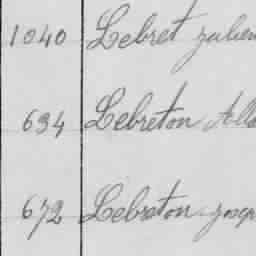 1040 Lebret Julien
634 Lebreton
672 Lebreton